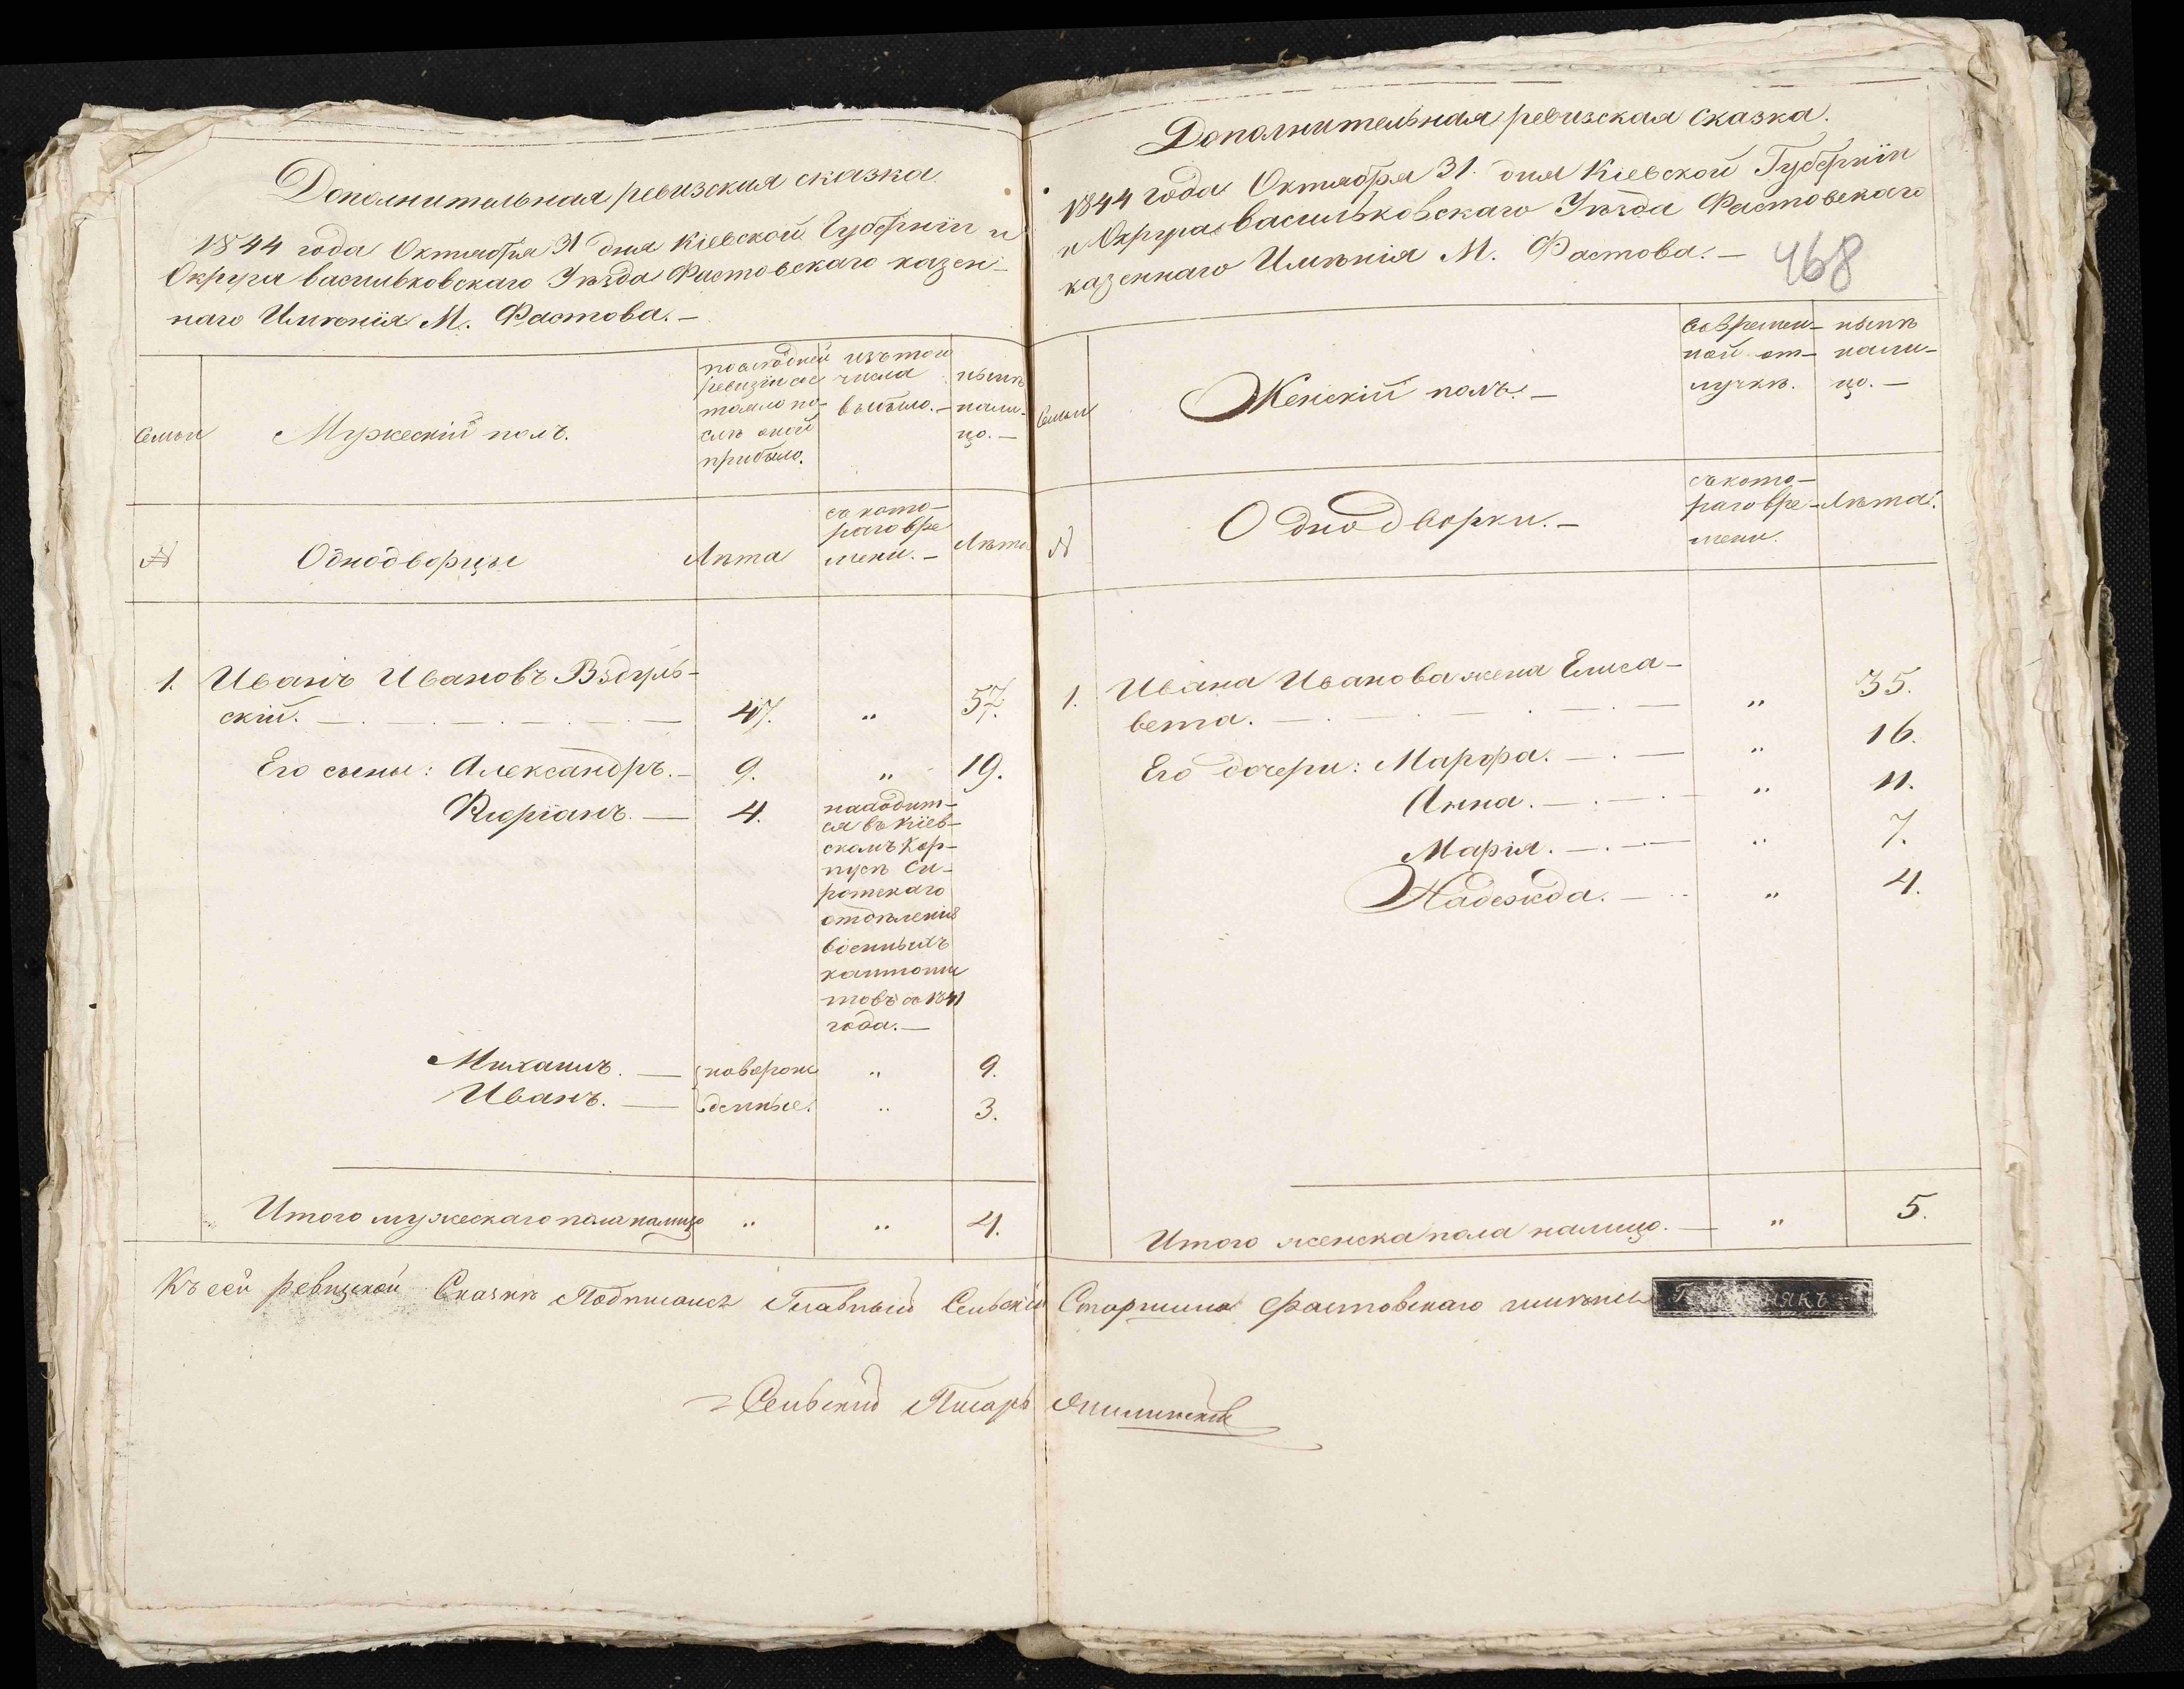 Дополнительная ревизская сказка.
1844 года Октября 31 дня Кіевской Губерніи и
Округа Васильковскаго Уѣзда Фастовскаго казен-
наго Имѣнія М. Фастова. —
Семьи
Мужескій полъ.
по послѣдней
ревизіи сос
тояло по-
слѣ оной
прибыло.
изъ того
числа
выбыло. —
нынѣ
нали-
цо. —
№
Однодворцы
Лѣта
съ кото-
раго вре
мени. —
Лѣта
1. Иванъ Ивановъ Вздуль-
скій. — 47. „ 57.
Его сыны: Александръ. — 9. „ 19.
Флоріанъ. — 4. находит-
ся въ Кіев-
скомъ Кор-
пусѣ Си-
ротскаго
отдѣленія
военныхъ
кантонис
товъ съ 1841
года. —
Михаилъ. — новорож „ 9.
Иванъ. — денные. „ 3.
Итого мужескаго пола налицо „ „ 4.
Дополнительная ревизская сказка.
1844 года Октября 31. дня Кіевской Губерніи
и Округа Васильковскаго Уѣзда Фастовскаго
казеннаго Имѣнія М. Фастова. —
468
Семьи
Женскій полъ. —
во времен-
ной от-
лучкѣ.
нынѣ
нали-
цо. —
№
Однодворки. —
съ кото-
раго вре-
мени.
Лѣта.
1. Ивана Иванова жена Елиса-
вета. — „ 35.
Его дочери: Марфа. — „ 16.
Анна. — „ 11.
Марія. — „ 7.
Надежда. — „ 4.
Итого женска пола налицо. — „ 5.
Къ сей ревизской Сказкѣ Подписался Главный Сельскій Старшина Фастовскаго имѣнія
Сельскій Писарь